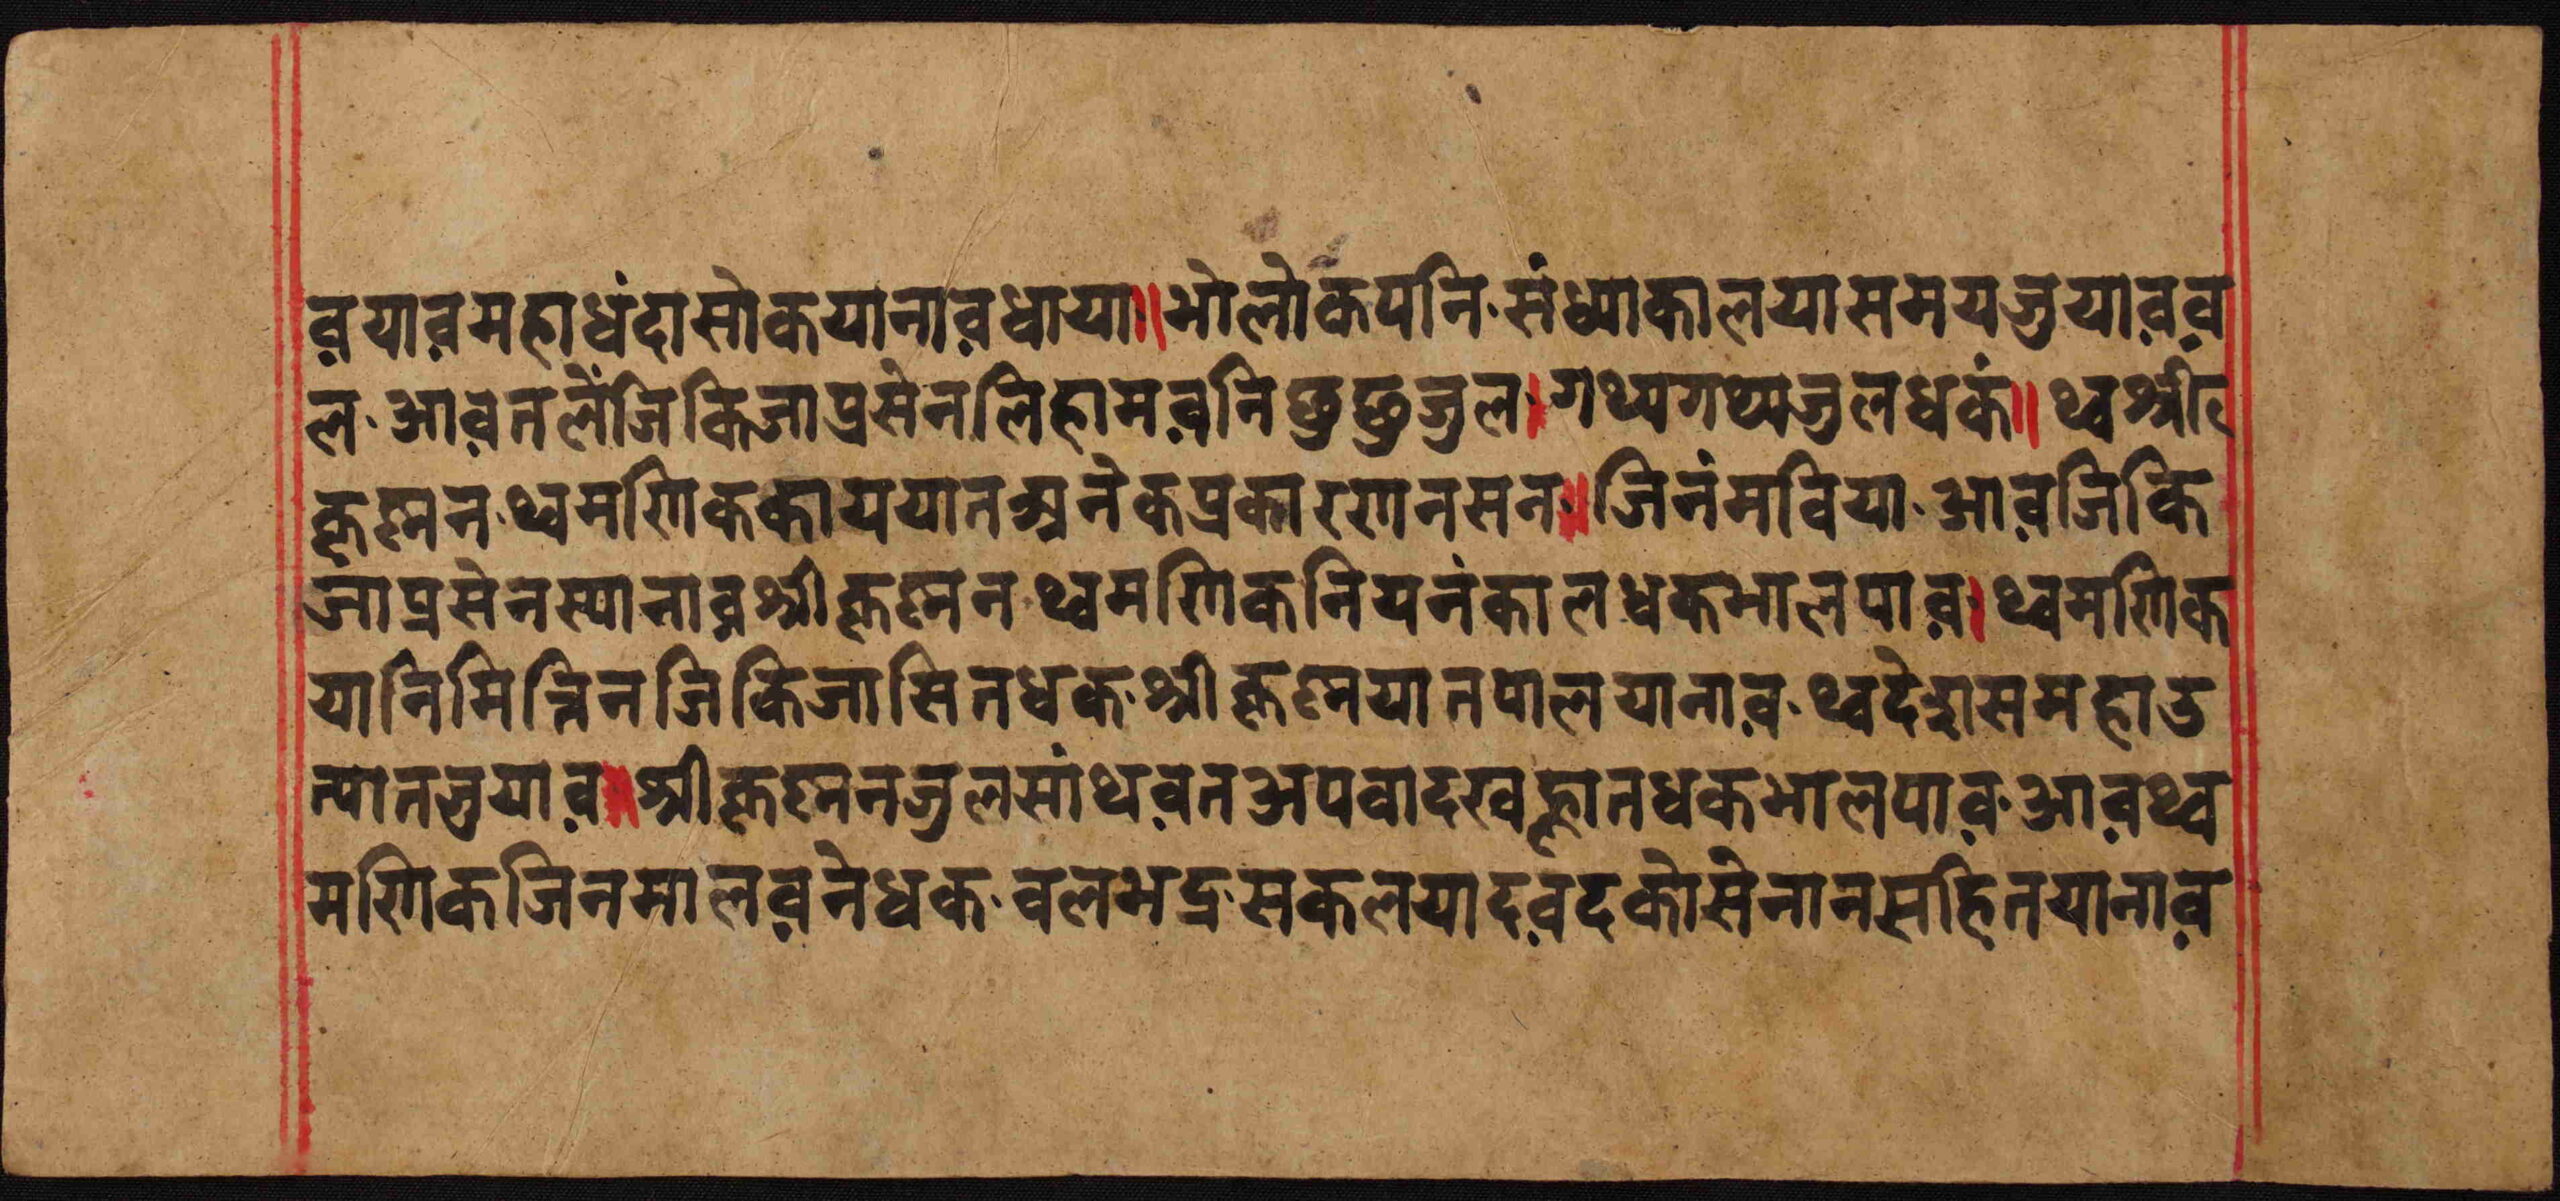 व़याव़महाधंदासोकयानाव़धाया॥भोलोकपनि·संध्याकालयासमयजुयाव़व़
ल·आव़तलेंजिकिजाप्रसेनलिहामव़निछुछुजुल।गथ्यगथ्यजुलधकं॥थ्वश्री
कृष्नन·थ्वमणिककाययातअनेकप्रकाररणनसन॥जिनंमविया·आव़जिकि
जाप्रसेनस्यानाव़श्रीकृष्नन·थ्वमणिकनियनंकालधकभालपाव़।थ्वमणिक
यानिमित्तिनजिकिजासितधक·श्रीकृष्नयातपोलयानाव़·थ्वदेशसमहाउ
त्पातजुयाव़॥श्रीकृष्ननजुलसांथव़तअपवादखह्लातधकभालपाव़·आव़थ्व
मणिकजिनमालव़नेधक·वलभद्र·सकलयादव़दकोसेनानसहितयानाव़